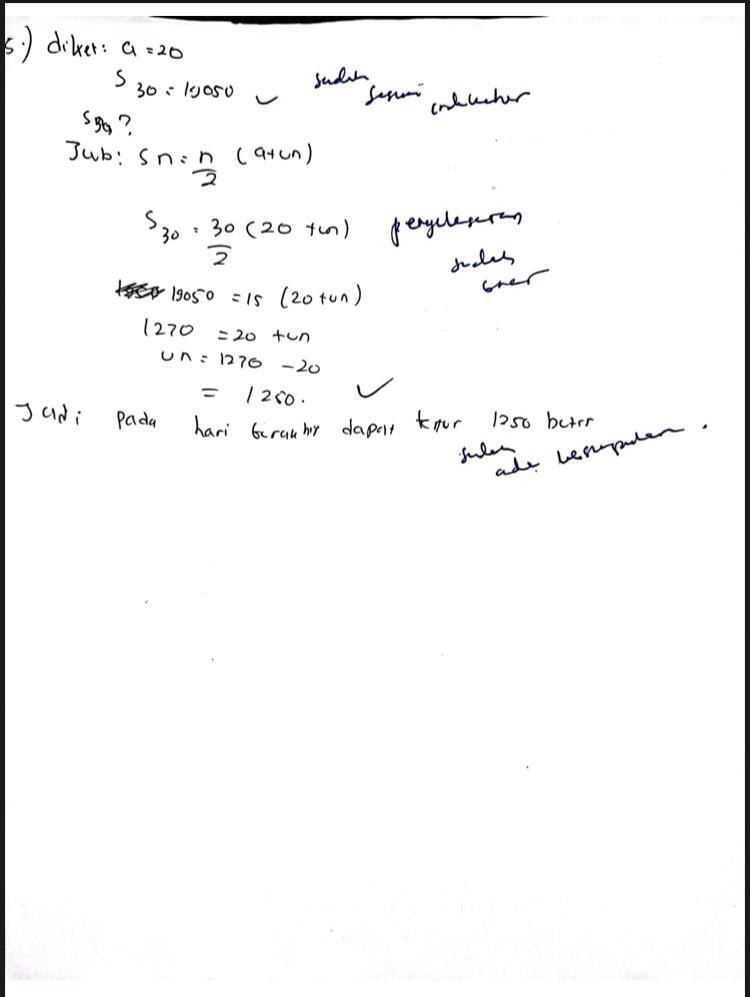 5.) diket: a = 20
S 30 = 19050 ✓ sudah sesuai indikator
S30?
Jwb: Sn = n/2 (a+un)
S30 = 30/2 (20 + un) penyelesaian sudah bner
19050 = 15 (20+un)
1270 = 20 + un
un = 1270 - 20
= 1250. ✓
Jadi pada hari terakhir dapat telur 1250 butir
sudah ada kesimpulan.